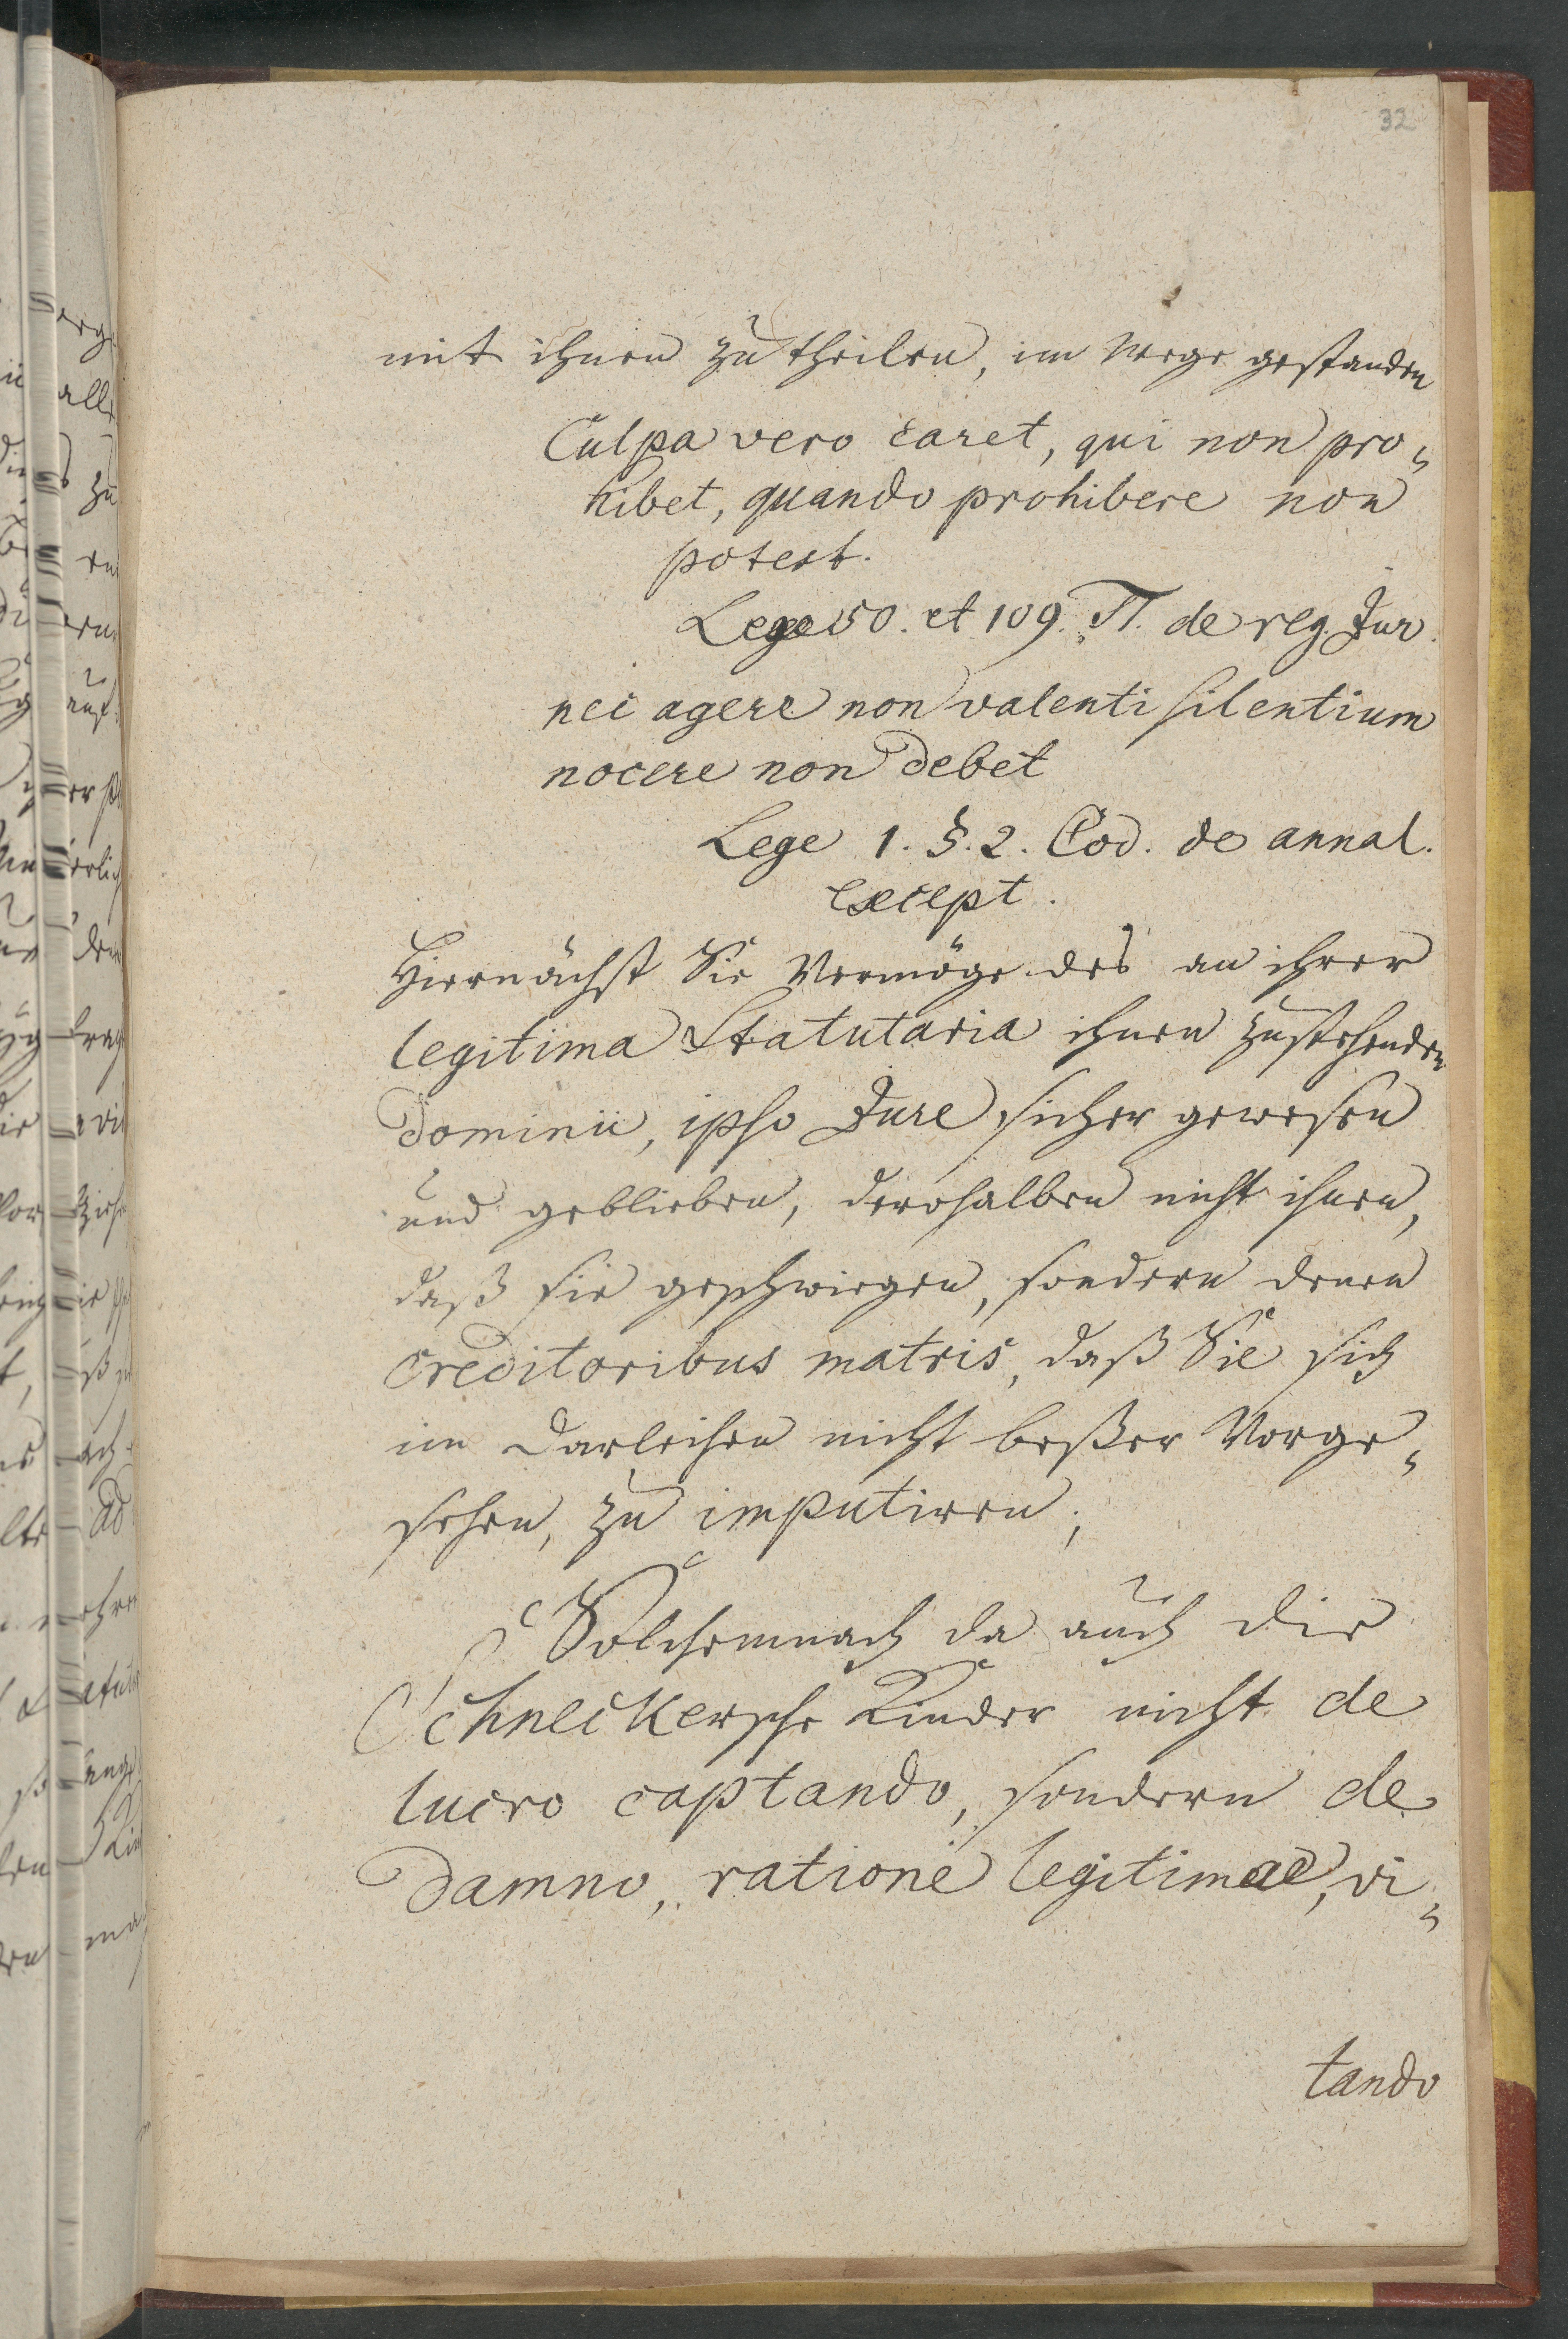 32
mit ihnen zu theilen, im Wege gestanden
Culpa vero caret, qui non pro-
hibet, quando prohibere non
potest.
Lege 50. et 109. π. de reg. Jur.
nec agere non valenti silentium
nocere non debet
Lege 1. §. 2. Cod. de annal.
except.
Hiernächst Sie Vermöge des an ihrer
legitima Statutaria ihnen zustehenden
Dominii, ipso Jure sicher gewesen
und geblieben, derohalben nicht ihnen,
daß sie geschwiegen, sondern denen
Creditoribus matris, daß Sie sich
im Darleihen nicht beßer Vorge-
sehen, zu imputiren;
Solchemnach da auch die
Schneckersche Kinder nicht de
lucro captando, sondern de
damno, ratione legitimae, vi-
tando